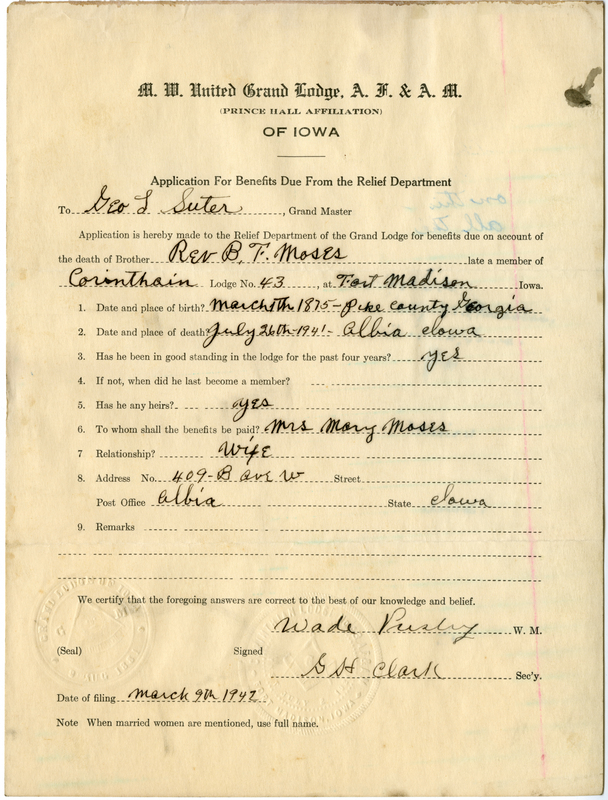 M. W. United Grand Lodge, A. F. & A. M.
(PRINCE HALL AFFILIATION)
OF IOWA
Application For Benefits Due From the Relief Department
To Geo L Suter, Grand Master
Application is hereby made to the Relief Department of the Grand Lodge for benefits due on account of
the death of Brother Rev B. F. Moses late a member of
Corinthain Lodge No. 43, at Fort Madison Iowa.
1. Date and place of birth? March 1875 - Pike County Georgia
2. Date and place of death? July 26th - 1941 - Albia Iowa
3. Has he been in good standing in the lodge for the past four years? yes
4. If not, when did he last become a member?
5. Has he any heirs? yes
6. To whom shall the benefits be paid? Mrs Mary Moses
7 Relationship? Wife
8. Address No. 409-B ave W Street
Post Office Albia State Iowa
9. Remarks
We certify that the foregoing answers are correct to the best of our knowledge and belief.
Wade W. M.
(Seal) Signed
G H Clark Sec'y.
Date of filing March 9th 1942
Note When married women are mentioned, use full name.